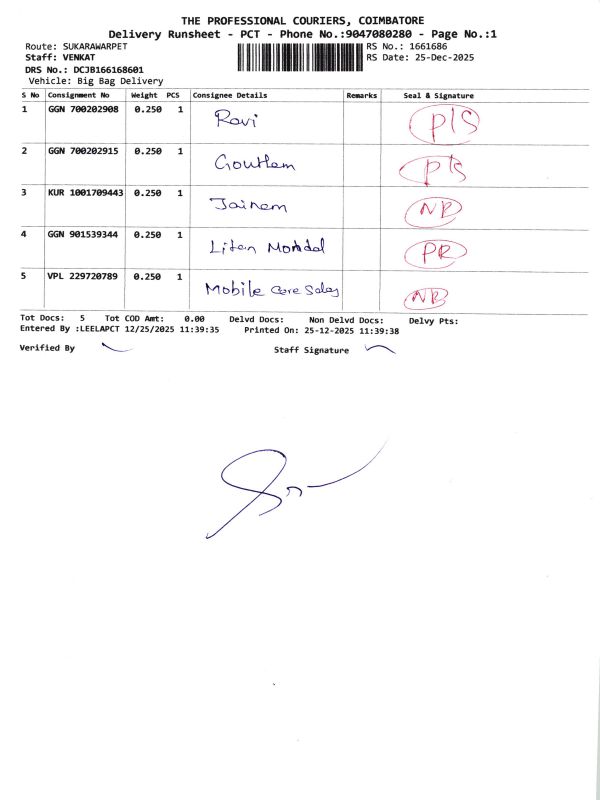 THE PROFESSIONAL COURIERS, COIMBATORE
Delivery Runsheet - PCT - Phone No.:9047080280 - Page No.:1
Route: SUKARAWARPET RS No.: 1661686
Staff: VENKAT RS Date: 25-Dec-2025
DRS No.: DCJB166168601
Vehicle: Big Bag Delivery
S No Consignment No Weight PCS Consignee Details Remarks Seal & Signature
1 GGN 700202908 0.250 1 Ravi P/S
2 GGN 700202915 0.250 1 Gouthem P/S
3 KUR 1001709443 0.250 1 Jainem NR
4 GGN 901539344 0.250 1 Liten Mondal PR
5 VPL 229720789 0.250 1 Mobile Care Sales NR
Tot Docs: 5 Tot COD Amt: 0.00 Delvd Docs: Non Delvd Docs: Delvy Pts:
Entered By :LEELAPCT 12/25/2025 11:39:35 Printed On: 25-12-2025 11:39:38
Verified By Staff Signature